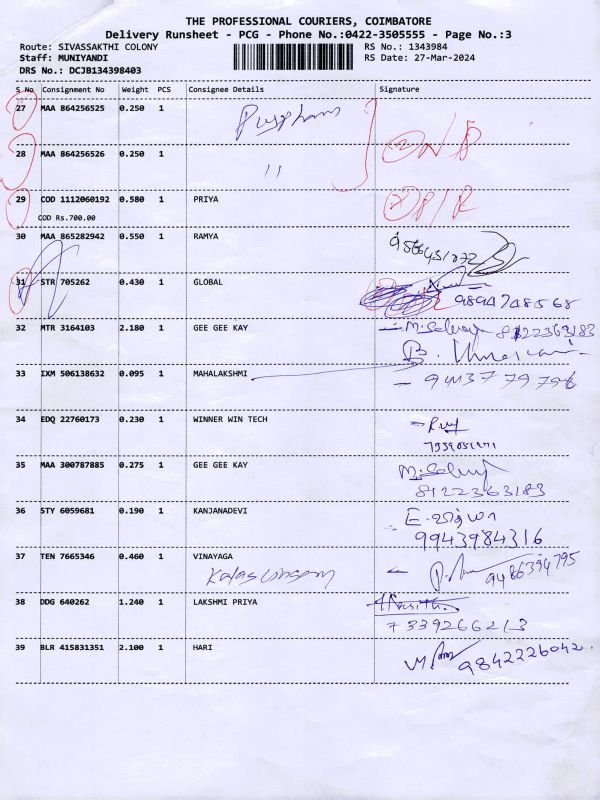 THE PROFESSIONAL COURIERS, COIMBATORE
Delivery Runsheet - PCG - Phone No.:0422-3505555 - Page No.:3
Route: SIVASSAKTHI COLONY RS No.: 1343984
Staff: MUNIYANDI RS Date: 27-Mar-2024
DRS No.: DCJB134398403
S No Consignment No Weight PCS Consignee Details Signature
27 MAA 864256525 0.250 1
28 MAA 864256526 0.250 1 11
29 COD 1112060192 0.580 1 PRIYA
COD Rs.700.00
30 MAA 865282942 0.550 1 RAMYA
31 STR 705262 0.430 1 GLOBAL 9894748568
32 MTR 3164103 2.180 1 GEE GEE KAY 8122363183
33 IXM 506138632 0.095 1 MAHALAKSHMI
34 EDQ 22760173 0.230 1 WINNER WIN TECH
35 MAA 300787885 0.275 1 GEE GEE KAY
8122363183
36 STY 6059681 0.190 1 KANJANADEVI
9943984316
37 TEN 7665346 0.460 1 VINAYAGA 9486394795
38 DDG 640262 1.240 1 LAKSHMI PRIYA
7339266213
39 BLR 415831351 2.100 1 HARI 9842226042.